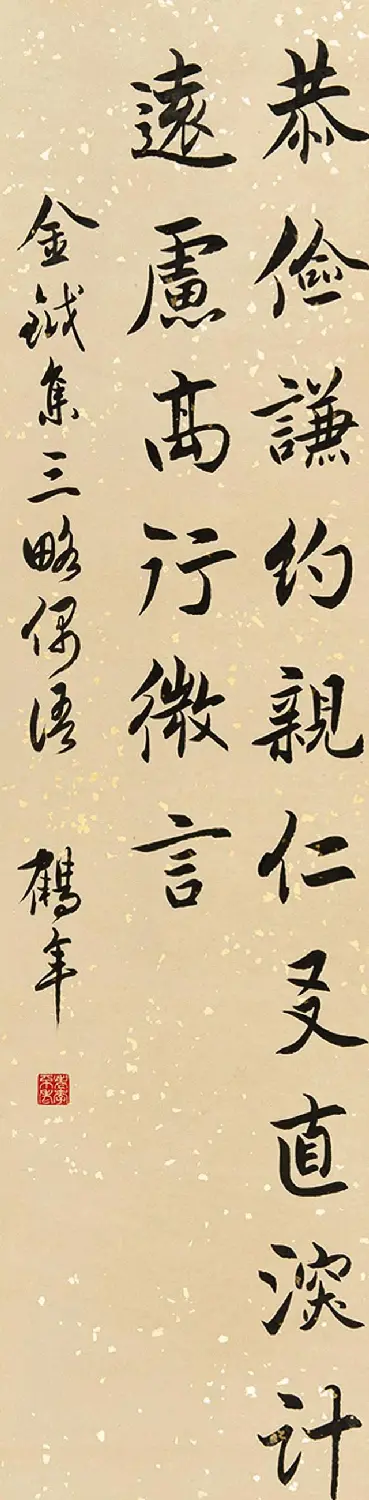 恭儉謙約親仁友直深計
遠慮高行微言
金鍼集三略偶語
鶴年